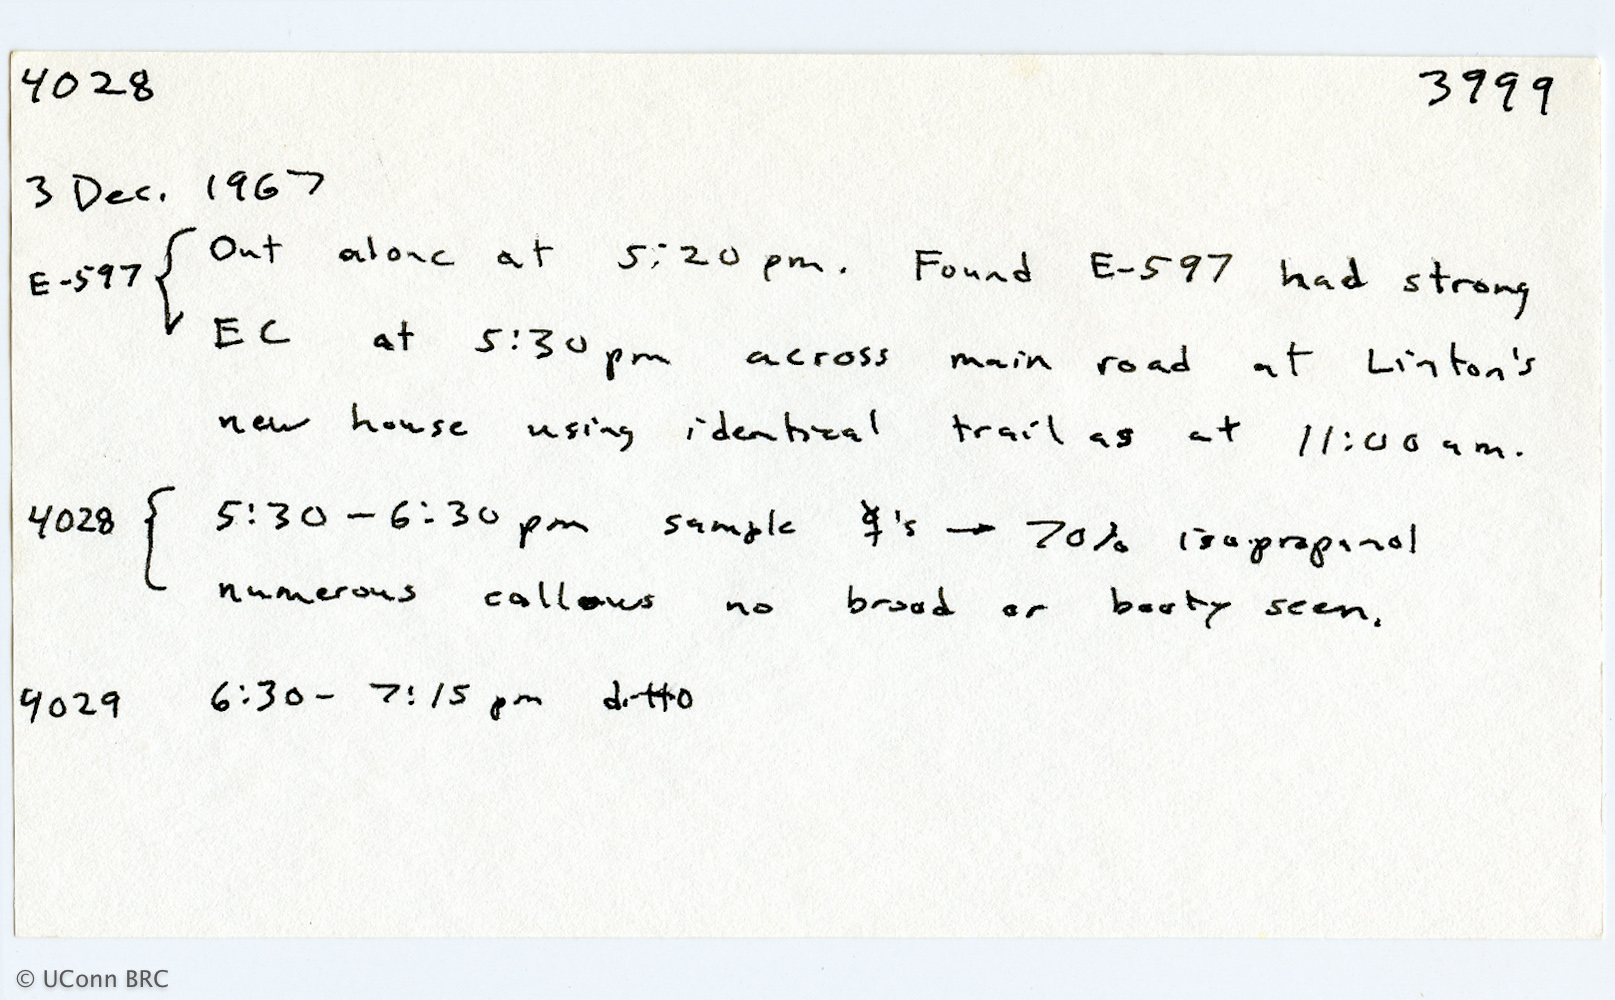 4028 3999
3 Dec. 1967
E-597 { Out alone at 5:20 pm. Found E-597 had strong
EC at 5:30 pm across main road at Linton's
new house using identical trail as at 11:00 am.
4028 { 5:30 - 6:30 pm sample ☿'s → 70% isopropanol
numerous callows no brood or booty seen.
4029 6:30 - 7:15 pm ditto
© UConn BRC